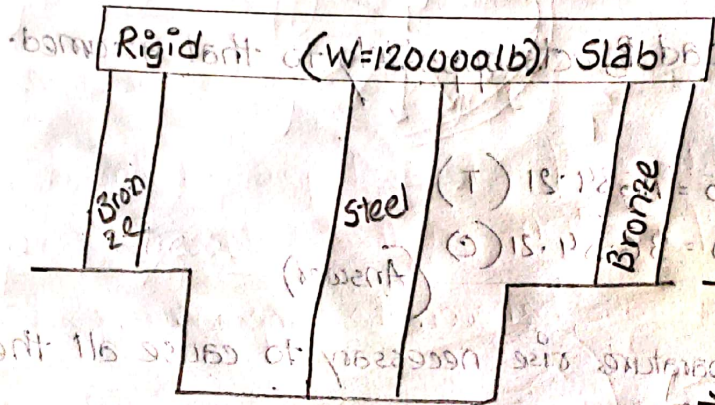 Rigid (W=120000lb) Slab
Bron
ze
Steel
Bronze